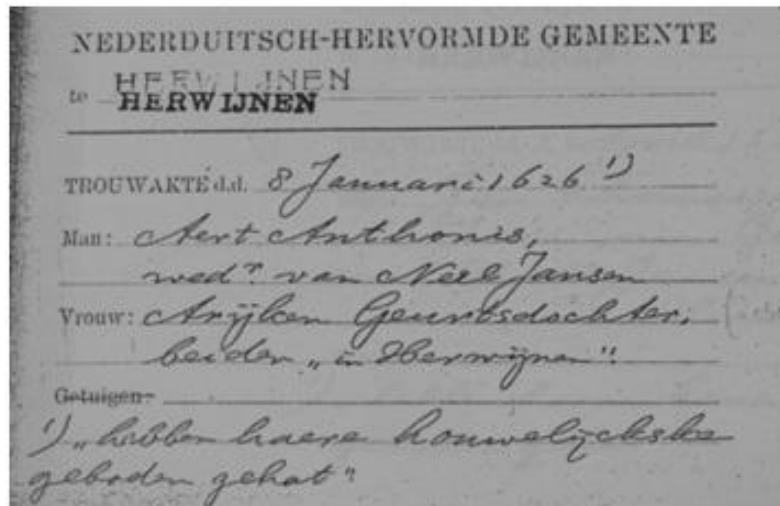 NEDERDUITSCH-HERVORMDE GEMEENTE
HERWIJNEN
te HERWIJNEN
TROUWAKTE d.d. 8 Januari 1626 ¹)
Man: Aert Anthonis,
wedr. van Neel Jansen
Vrouw: Arijken Geurtsdochter,
beiden „in Herwijnen".
Getuigen:
¹) „hebben haere houwelijckske
geboden gehat"